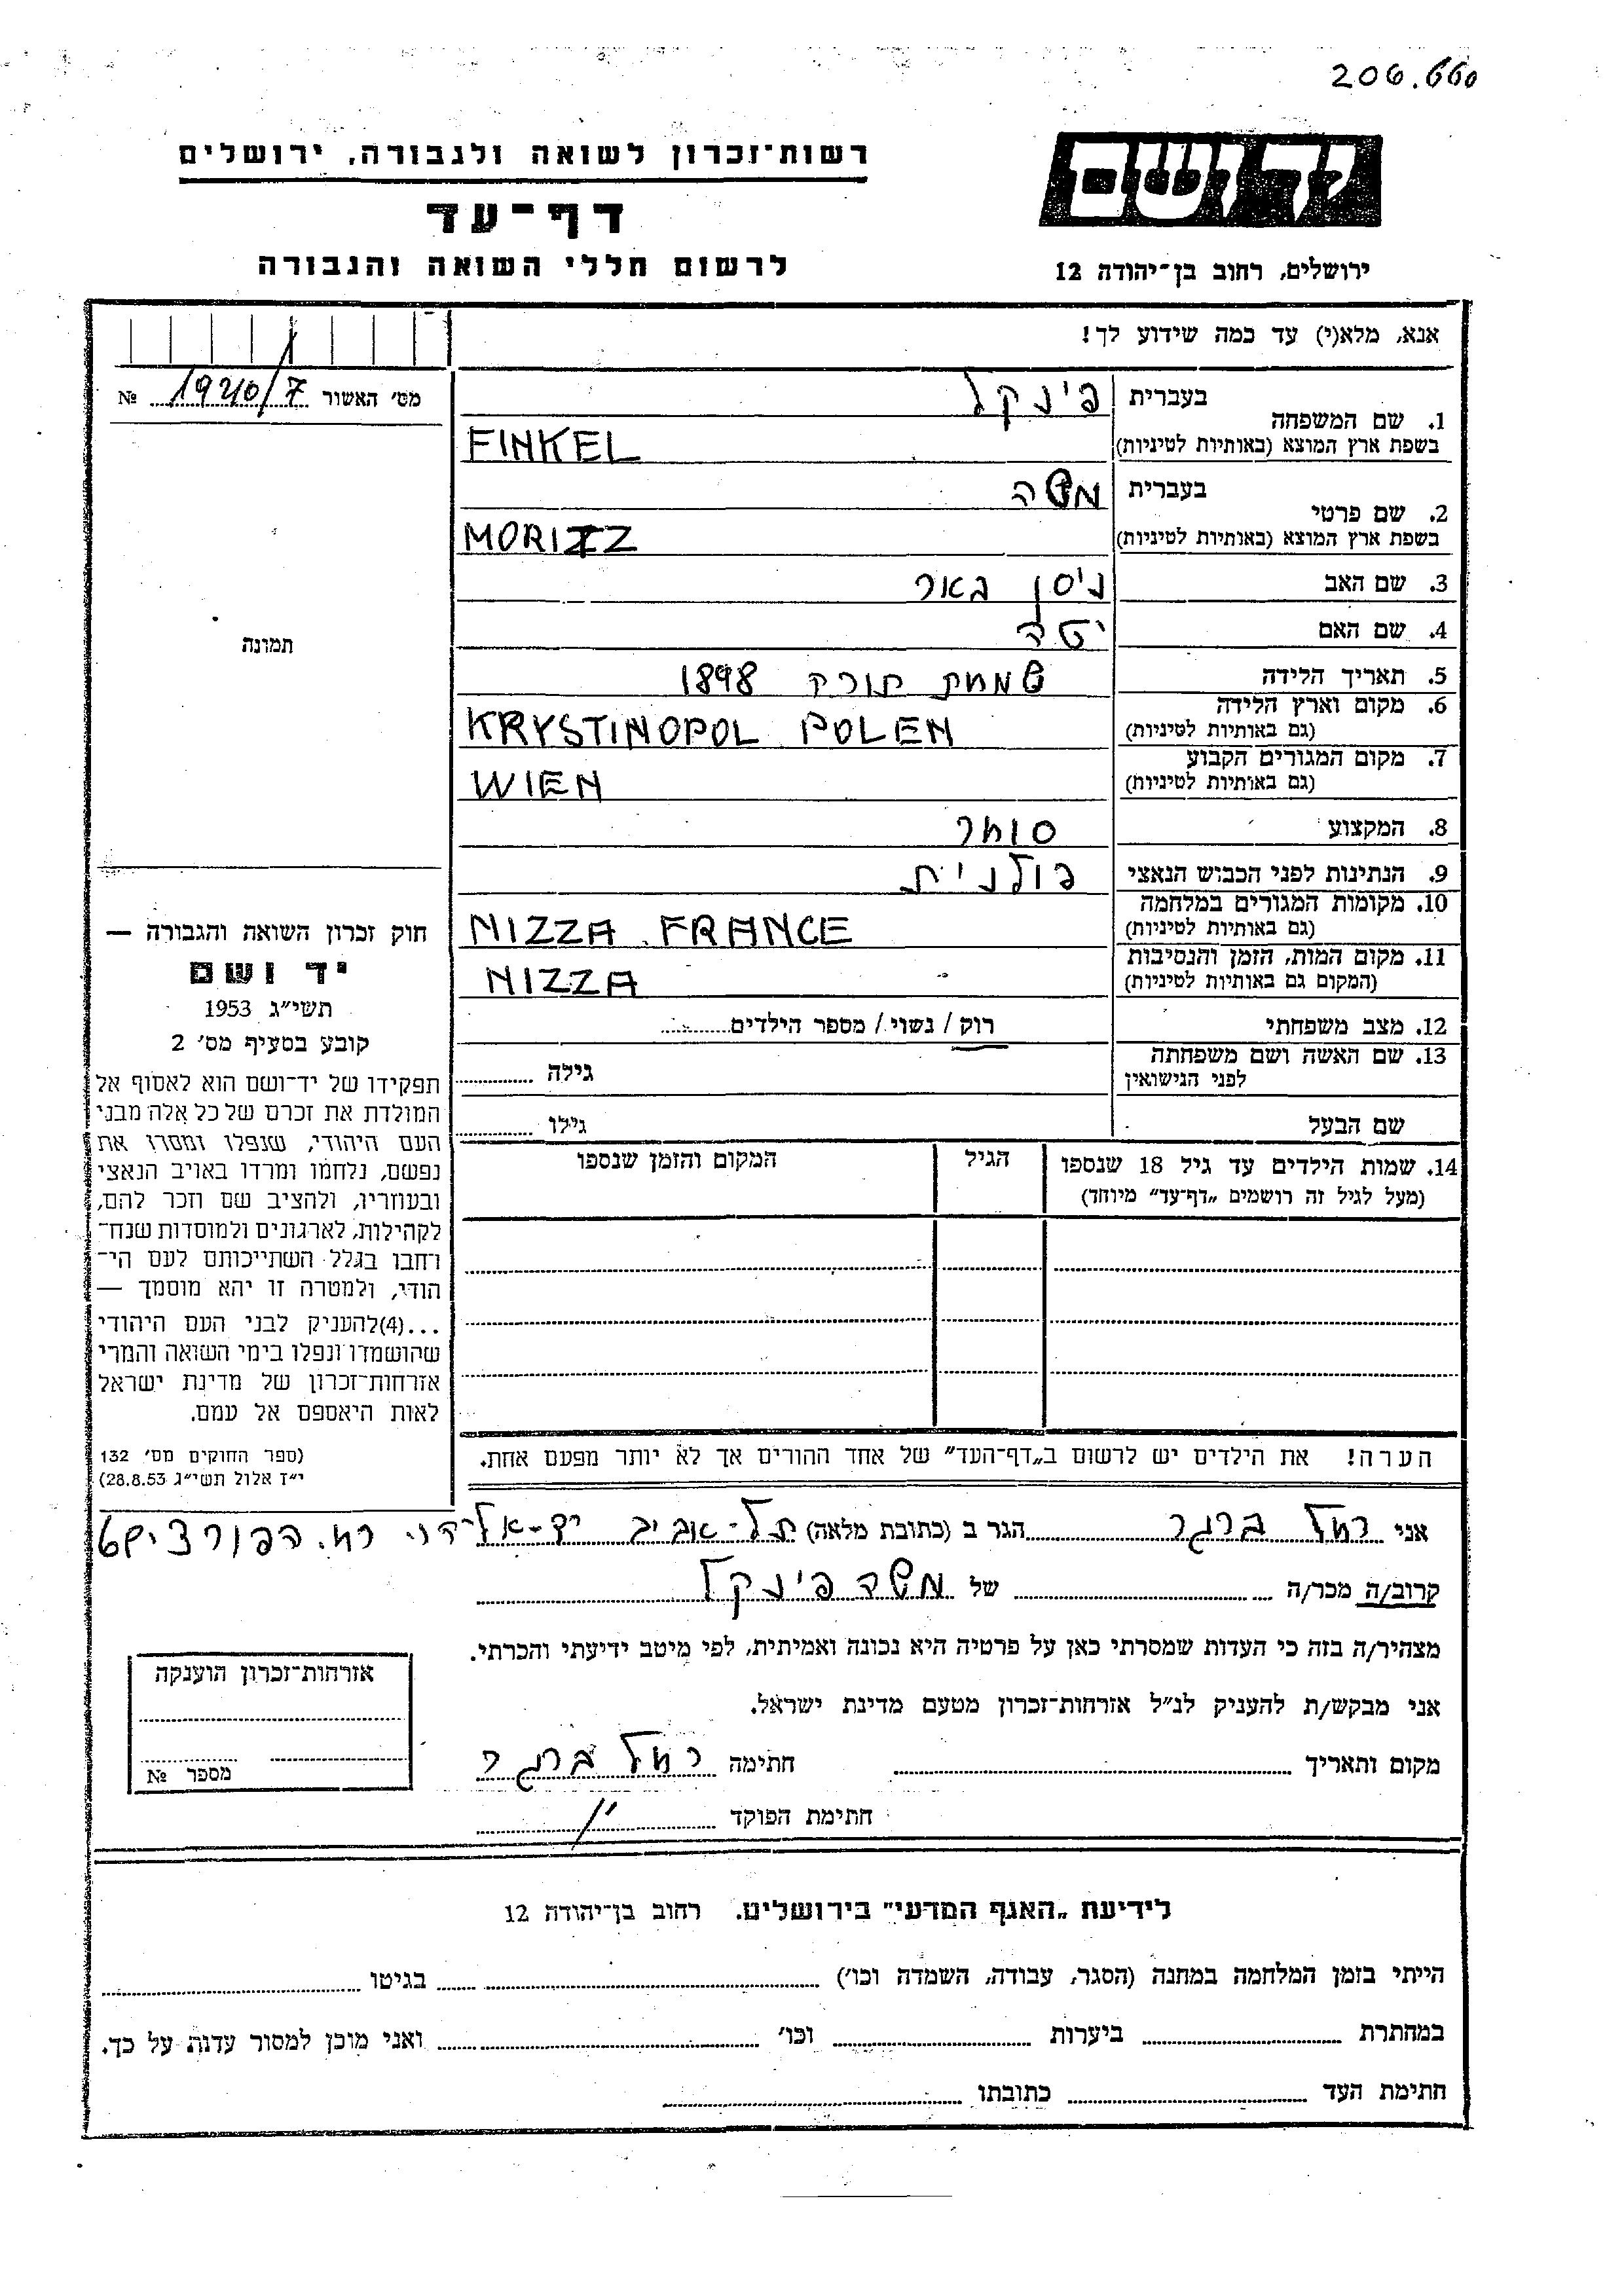 206.660
רשות־זכרון לשואה ולגבורה, ירושלים
יד ושם
דף־עד
לרשום חללי השואה והגבורה
ירושלים, רחוב בן־יהודה 12
אנא, מלא(י) עד כמה שידוע לך!
מס' האשור 1920/7 №
1. שם המשפחה
בעברית פינקל
בשפת ארץ המוצא (באותיות לטיניות) FINKEL
2. שם פרטי
בעברית משה
בשפת ארץ המוצא (באותיות לטיניות) MORITZ
3. שם האב ניסן באר
4. שם האם יטה
תמונה
5. תאריך הלידה שמחת תורה 1898
6. מקום וארץ הלידה
(גם באותיות לטיניות) KRYSTINOPOL POLEN
7. מקום המגורים הקבוע
(גם באותיות לטיניות) WIEN
8. המקצוע סוחר
9. הנתינות לפני הכבוש הנאצי פולנית
10. מקומות המגורים במלחמה
(גם באותיות לטיניות) NIZZA. FRANCE
11. מקום המות, הזמן והנסיבות
(המקום גם באותיות לטיניות) NIZZA
12. מצב משפחתי רוק / נשוי / מספר הילדים
13. שם האשה ושם משפחתה
לפני הנישואין גילה
שם הבעל גילו
14. שמות הילדים עד גיל 18 שנספו הגיל המקום והזמן שנספו
(מעל לגיל זה רושמים „דף־עד" מיוחד)
חוק זכרון השואה והגבורה —
יד ושם
תשי"ג 1953
קובע בסעיף מס' 2
תפקידו של יד־ושם הוא לאסוף אל
המולדת את זכרם של כל אלה מבני
העם היהודי, שנפלו ומסרו את
נפשם, נלחמו ומרדו באויב הנאצי
ובעוזריו, ולהציב שם וזכר להם,
לקהילות, לארגונים ולמוסדות שנח־
רחבו בגלל השתייכותם לעם הי־
הודי, ולמטרה זו יהא מוסמך —
...(4)להעניק לבני העם היהודי
שהושמדו ונפלו בימי השואה והמרי
אזרחות־זכרון של מדינת ישראל
לאות היאספם אל עמם.
(ספר החוקים מס' 132
י"ז אלול תשי"ג 28.8.53)
הערה! את הילדים יש לרשום ב„דף־העד" של אחד ההורים אך לא יותר מפעם אחת.
אני רחל ברגר הגר ב (כתובת מלאה) תל-אביב יד-אליהו רח.
קרוב/ה מכר/ה של משה פינקל
מצהיר/ה בזה כי העדות שמסרתי כאן על פרטיה היא נכונה ואמיתית, לפי מיטב ידיעתי והכרתי.
אני מבקש/ת להעניק לנ"ל אזרחות־זכרון מטעם מדינת ישראל.
מקום ותאריך חתימה רחל ברגר
חתימת הפוקד
אזרחות־זכרון הוענקה
מספר №
לידיעת „האגף המדעי" בירושלים. רחוב בן־יהודה 12
הייתי בזמן המלחמה במחנה (הסגר, עבודה, השמדה וכו') בגיטו
במחתרת ביערות וכו' ואני מוכן למסור עדות על כך.
חתימת העד כתובתו